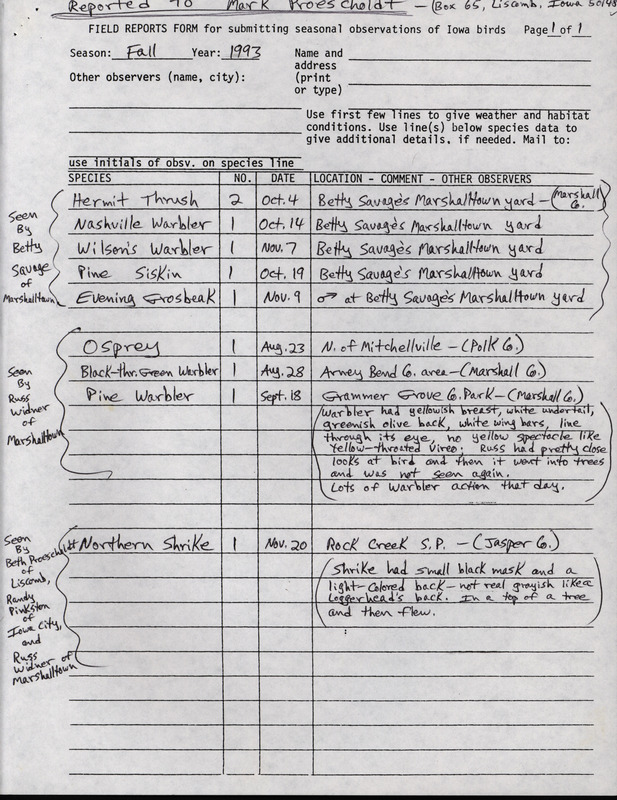 Reported to Mark Proescholdt - (Box 65, Liscomb, Iowa 50148)
FIELD REPORTS FORM for submitting seasonal observations of Iowa birds Page 1 of 1
Season: Fall Year: 1993
Name and
address
(print
or type)
Other observers (name, city):
Use first few lines to give weather and habitat
conditions. Use line(s) below species data to
give additional details, if needed. Mail to:
use initials of obsv. on species line
SPECIES NO. DATE LOCATION - COMMENT - OTHER OBSERVERS
Seen
By
Betty
Savage
of
Marshalltown
Hermit Thrush 2 Oct. 4 Betty Savage's Marshalltown yard - (Marshall Co.)
Nashville Warbler 1 Oct. 14 Betty Savage's Marshalltown yard
Wilson's Warbler 1 Nov. 7 Betty Savage's Marshalltown yard
Pine Siskin 1 Oct. 19 Betty Savage's Marshalltown yard
Evening Grosbeak 1 Nov. 9 ♂ at Betty Savage's Marshalltown yard
Seen
By
Russ
Widner
of
Marshalltown
Osprey 1 Aug. 23 N. of Mitchellville - (Polk Co.)
Black-thr. Green Warbler 1 Aug. 28 Arney Bend Co. area - (Marshall Co.)
Pine Warbler 1 Sept. 18 Grammer Grove Co. Park - (Marshall Co.)
(Warbler had yellowish breast, white undertail,
greenish olive back, white wing bars, line
through its eye, no yellow spectacle like
Yellow-throated Vireo; Russ had pretty close
looks at bird and then it went into trees
and was not seen again.
Lots of Warbler action that day.)
Seen
By
Beth Proescholdt
of
Liscomb,
Randy
Pinkston
of
Iowa City,
and
Russ
Widner of
Marshalltown
# Northern Shrike 1 Nov. 20 Rock Creek S.P. - (Jasper Co.)
(Shrike had small black mask and a
light-colored back - not real grayish like a
Loggerhead's back. In a top of a tree
and then flew.)